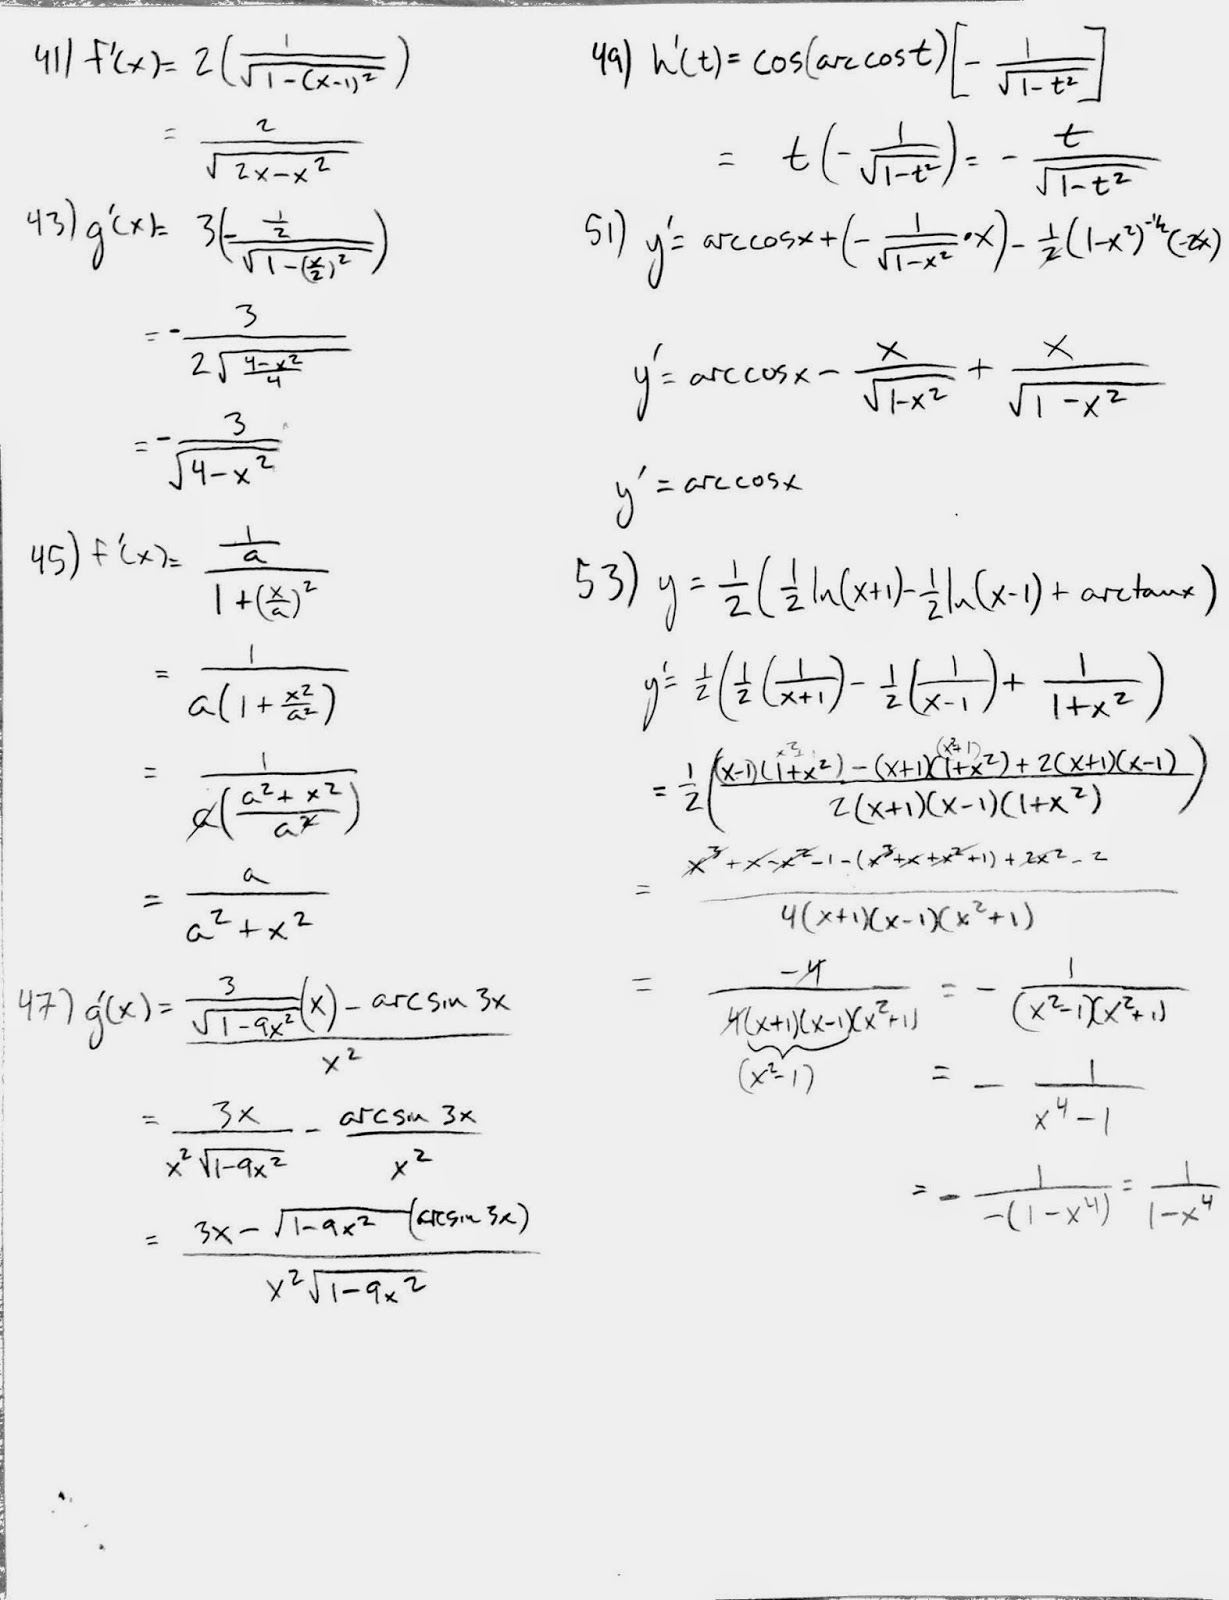 41) f'(x) = 2(1/√(1-(x-1)²))
= 2/√(2x-x²)
43) g'(x) = 3(-(1/2)/√(1-(x/2)²))
= -3/(2√((4-x²)/4))
= -3/√(4-x²)
45) f'(x) = (1/a)/(1+(x/a)²)
= 1/(a(1+x²/a²))
= 1/(a((a²+x²)/a²))
= a/(a²+x²)
47) g'(x) = (3/√(1-9x²)(x) - arcsin 3x)/x²
= 3x/(x²√(1-9x²)) - arcsin 3x/x²
= (3x - √(1-9x²) (arcsin 3x))/(x²√(1-9x²))
49) h'(t) = cos(arccost)[-1/√(1-t²)]
= t(-1/√(1-t²)) = -t/√(1-t²)
51) y' = arccosx + (-1/√(1-x²) · x) - 1/2(1-x²)^(-1/2)(-2x)
y' = arccosx - x/√(1-x²) + x/√(1-x²)
y' = arccosx
53) y = 1/2(1/2 ln(x+1) - 1/2 ln(x-1) + arctanx)
y' = 1/2(1/2(1/(x+1)) - 1/2(1/(x-1)) + 1/(1+x²))
= 1/2(((x-1)(1+x²) - (x+1)(1+x²) + 2(x+1)(x-1))/(2(x+1)(x-1)(1+x²)))
(x²+1)
= (x³+x-x²-1-(x³+x+x²+1)+2x²-2)/(4(x+1)(x-1)(x²+1))
= -4/(4(x+1)(x-1)(x²+1)) = -1/((x²-1)(x²+1))
(x²-1)
= -1/(x⁴-1)
= -1/(-(1-x⁴)) = 1/(1-x⁴)